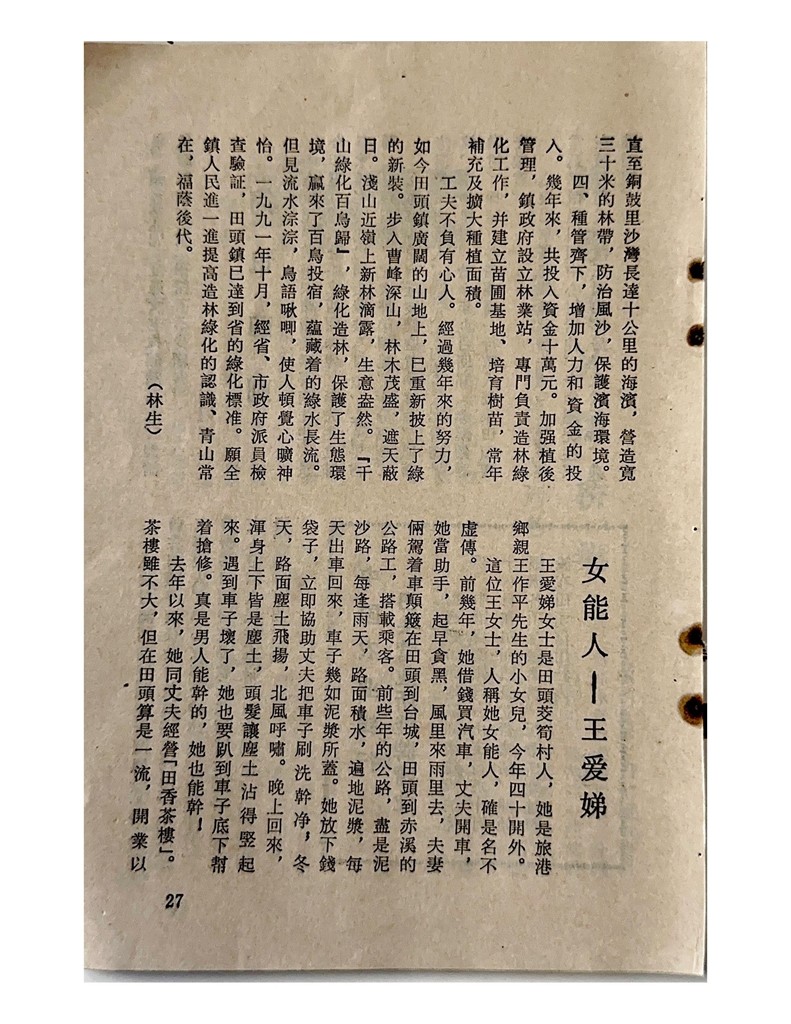 直至銅鼓里沙灣長達十公里的海濱，營造寬
三十米的林帶，防治風沙，保護濱海環境。
四、種管齊下，增加人力和資金的投
入。幾年來，共投入資金十萬元。加强植後
管理，鎮政府設立林業站，專門負責造林綠
化工作，并建立苗圃基地、培育樹苗，常年
補充及擴大種植面積。
工夫不負有心人。經過幾年來的努力，
如今田頭鎮廣闊的山地上，已重新披上了綠
的新裝。步入曹峰深山，林木茂盛，遮天蔽
日。淺山近嶺上新林滴露，生意盎然。『千
山綠化百鳥歸』，綠化造林，保護了生態環
境，贏來了百鳥投宿，蘊藏着的綠水長流。
但見流水淙淙，鳥語啾唧，使人頓覺心曠神
怡。一九九一年十月，經省、市政府派員檢
查驗証，田頭鎮已達到省的綠化標准。願全
鎮人民進一進提高造林綠化的認識、青山常
在，福蔭後代。
（林生）
女能人—王爱娣
王愛娣女士是田頭茭筍村人，她是旅港
鄉親王作平先生的小女兒，今年四十開外。
這位王女士，人稱她女能人，確是名不
虛傳。前幾年，她借錢買汽車，丈夫開車，
她當助手，起早貪黑，風里來雨里去，夫妻
倆駕着車顛簸在田頭到台城，田頭到赤溪的
公路工，搭載乘客。前些年的公路，盡是泥
沙路，每逢雨天，路面積水，遍地泥漿，每
天出車回來，車子幾如泥漿所蓋。她放下錢
袋子，立即協助丈夫把車子刷洗幹净，冬
天，路面塵土飛揚，北風呼嘯。晚上回來，
渾身上下皆是塵土，頭髮讓塵土沾得竪起
來。遇到車子壞了，她也要趴到車子底下幫
着搶修。真是男人能幹的，她也能幹！
去年以來，她同丈夫經營「田香茶樓」。
茶樓雖不大，但在田頭算是一流，開業以
27